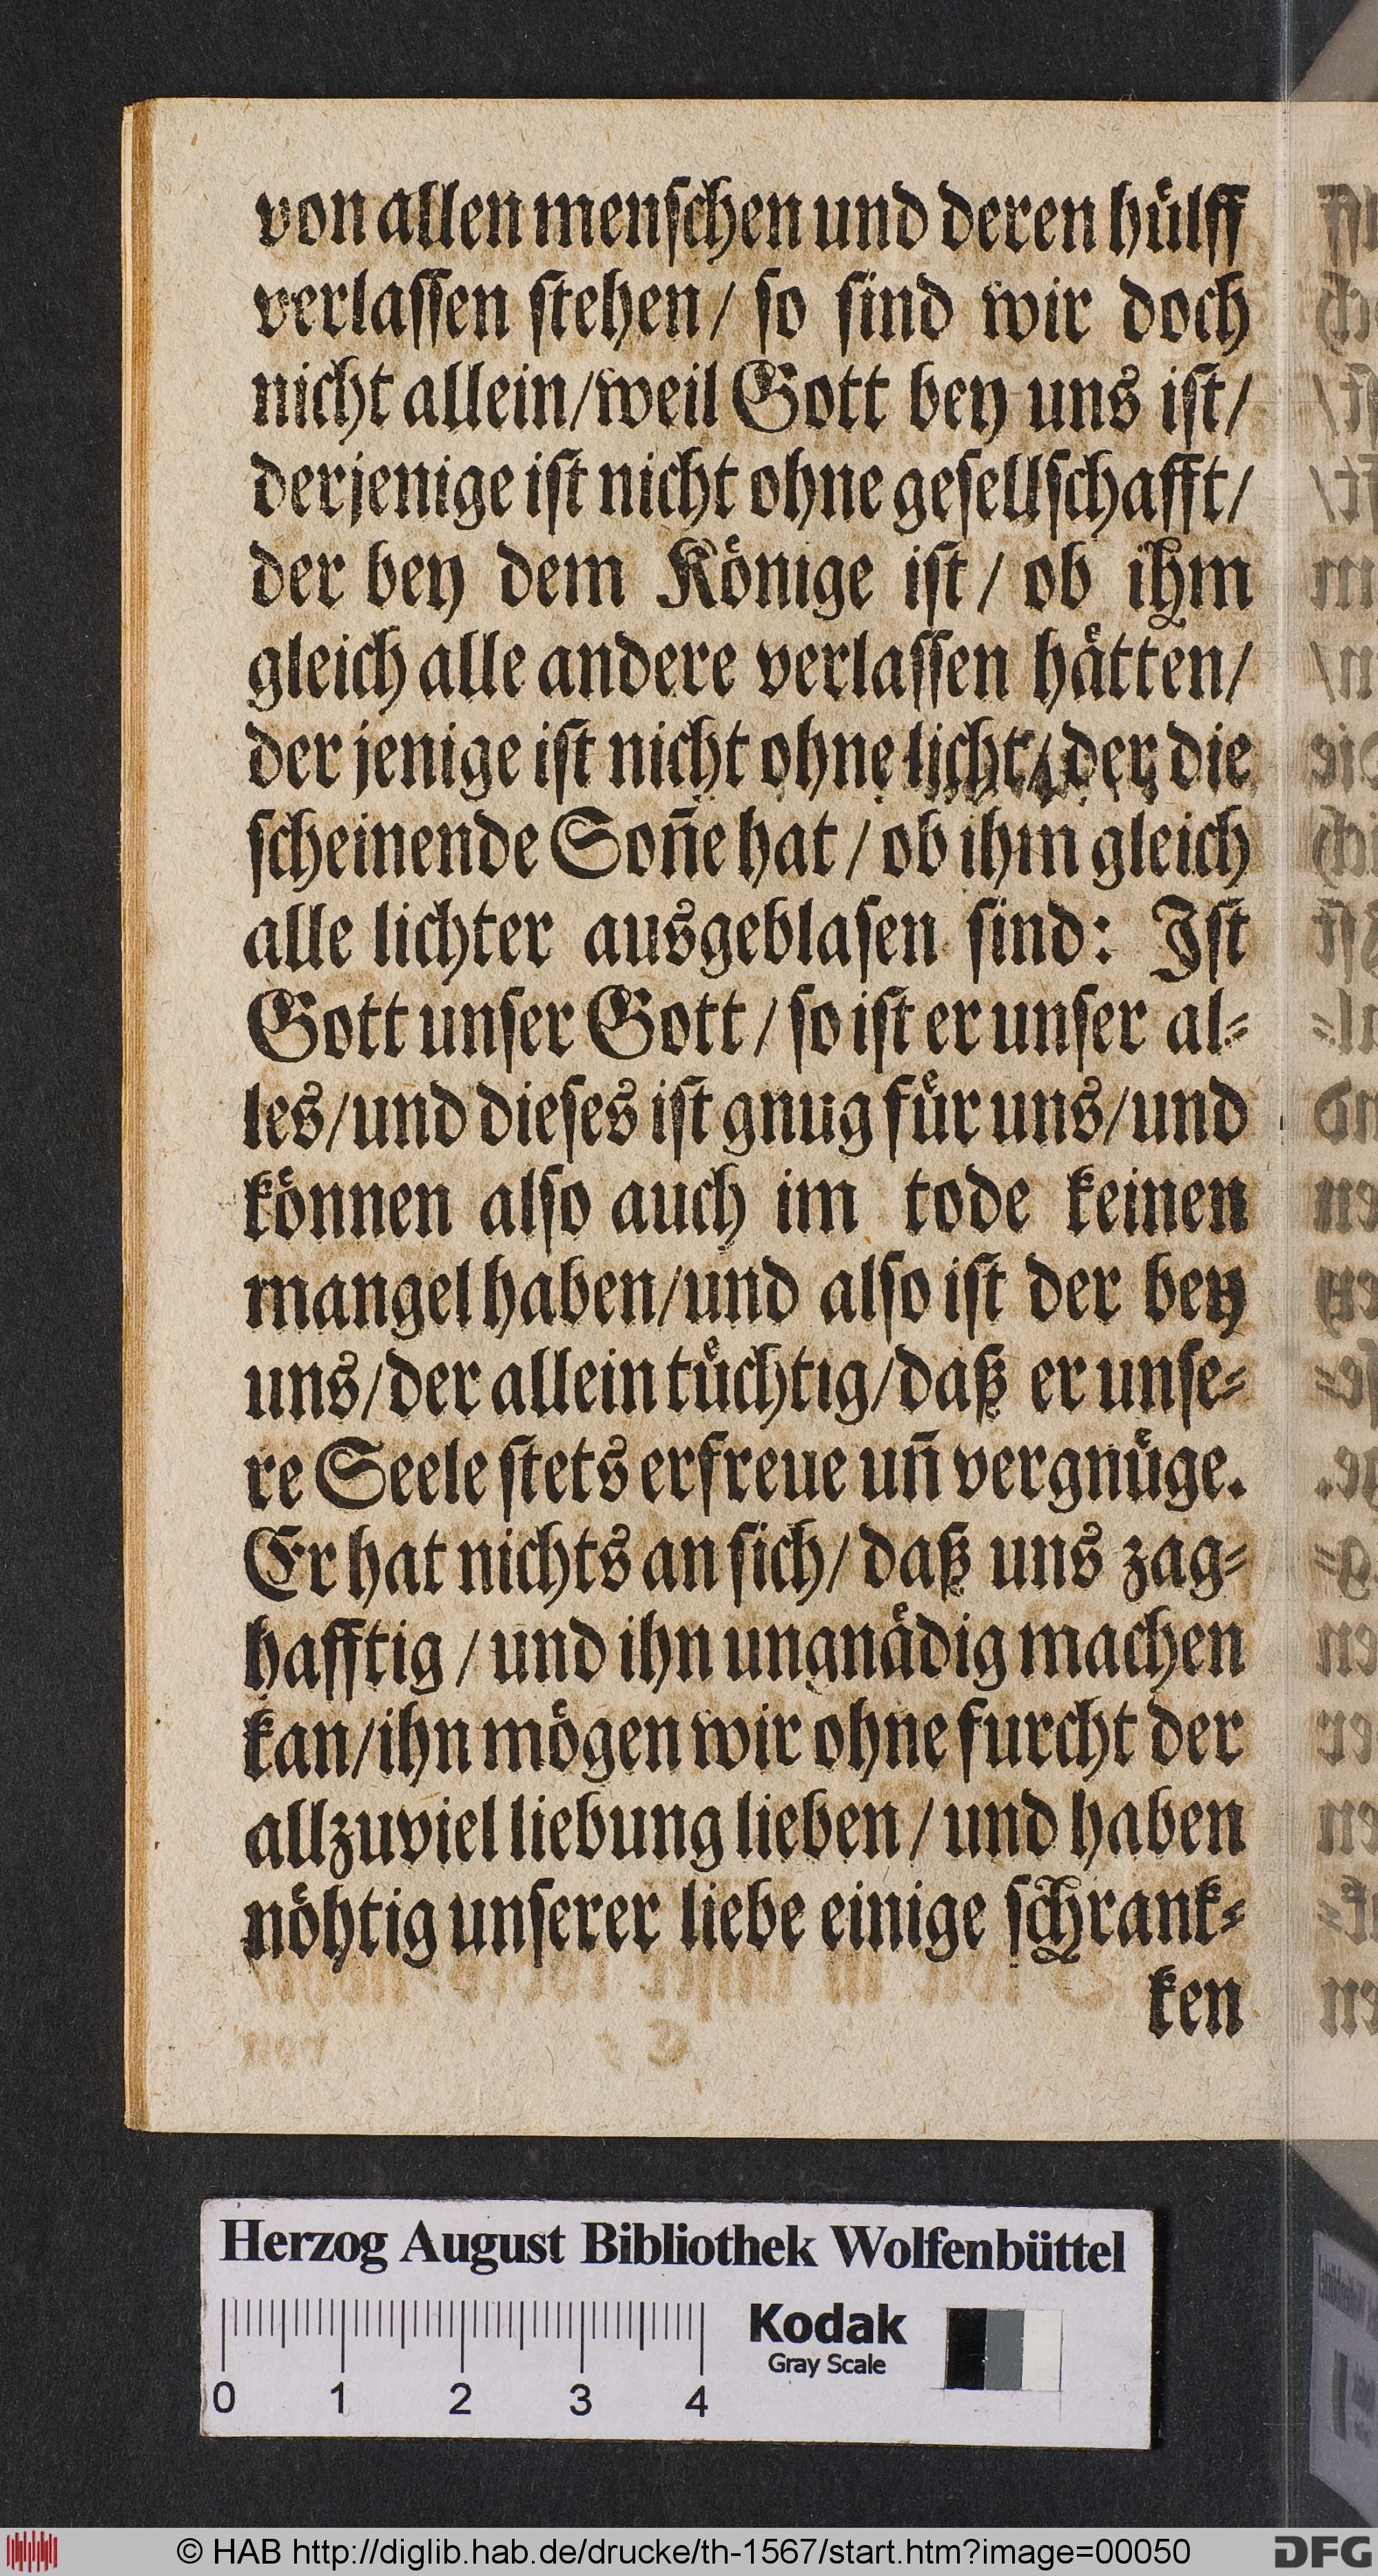 von allen menschen und deren huͤlff
verlassen stehen / so sind wir doch
nicht allein / weil Gott bey uns ist /
derjenige ist nicht ohne gesellschafft /
der bey dem Koͤnige ist / ob ihm
gleich alle andere verlassen haͤtten /
der jenige ist nicht ohne licht / der die
scheinende Son̄e hat / ob ihm gleich
alle lichter ausgeblasen sind: Ist
Gott unser Gott / so ist er unser al⸗
les / und dieses ist gnug fuͤr uns / und
koͤnnen also auch im tode keinen
mangel haben / und also ist der bey
uns / der allein tuͤchtig / daß er unse⸗
re Seele stets erfreue un̄ vergnuͤge.
Er hat nichts an sich / daß uns zag⸗
hafftig / und ihn ungnaͤdig machen
kan / ihn moͤgen wir ohne furcht der
allzuviel liebung lieben / und haben
noͤhtig unserer liebe einige schrank⸗
ken
Herzog August Bibliothek Wolfenbüttel
Kodak
Gray Scale
0 1 2 3 4
© HAB http://diglib.hab.de/drucke/th-1567/start.htm?image=00050
DFG